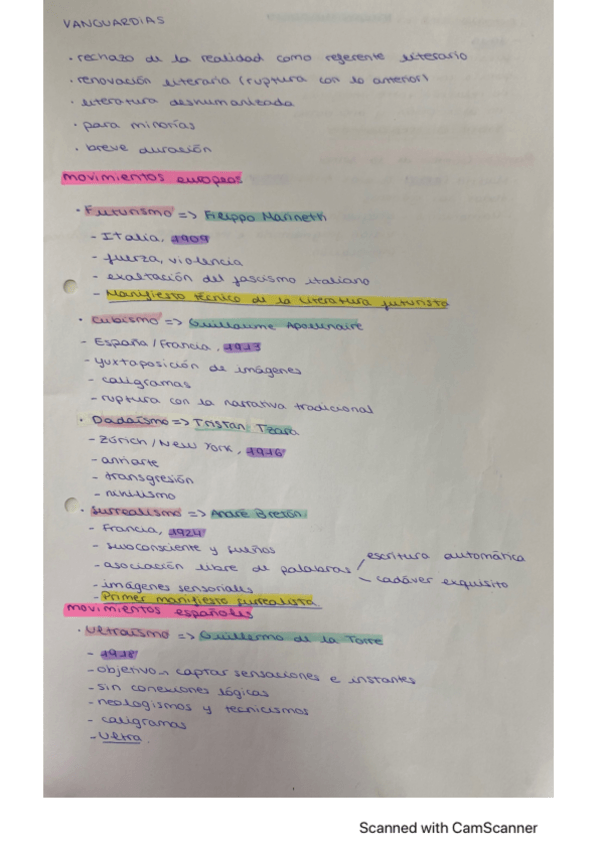 VANGUARDIAS
· rechazo de la realidad como referente literario
· renovación literaria (ruptura con lo anterior)
· literatura deshumanizada
· para minorías
· breve duración
movimientos europeos
· Futurismo => Filippo Marinetti
- Italia, 1909
- fuerza, violencia
- exaltación del fascismo italiano
- Manifiesto técnico de la literatura futurista
· Cubismo => Guillaume Apollinaire
- España / Francia, 1913
- yuxtaposición de imágenes
- caligramas
- ruptura con la narrativa tradicional
· Dadaísmo => Tristan Tzara
- Zúrich / New York, 1916
- antiarte
- transgresión
- nihilismo
· Surrealismo => André Bretón
- Francia, 1924
- subconsciente y sueños
- asociación libre de palabras / escritura automática
\ cadáver exquisito
- imágenes sensoriales
- Primer manifiesto surrealista
movimientos españoles
· Ultraísmo => Guillermo de la Torre
- 1918
- objetivo → captar sensaciones e instantes
- sin conexiones lógicas
- neologismos y tecnicismos
- caligramas
- Ultra
Scanned with CamScanner